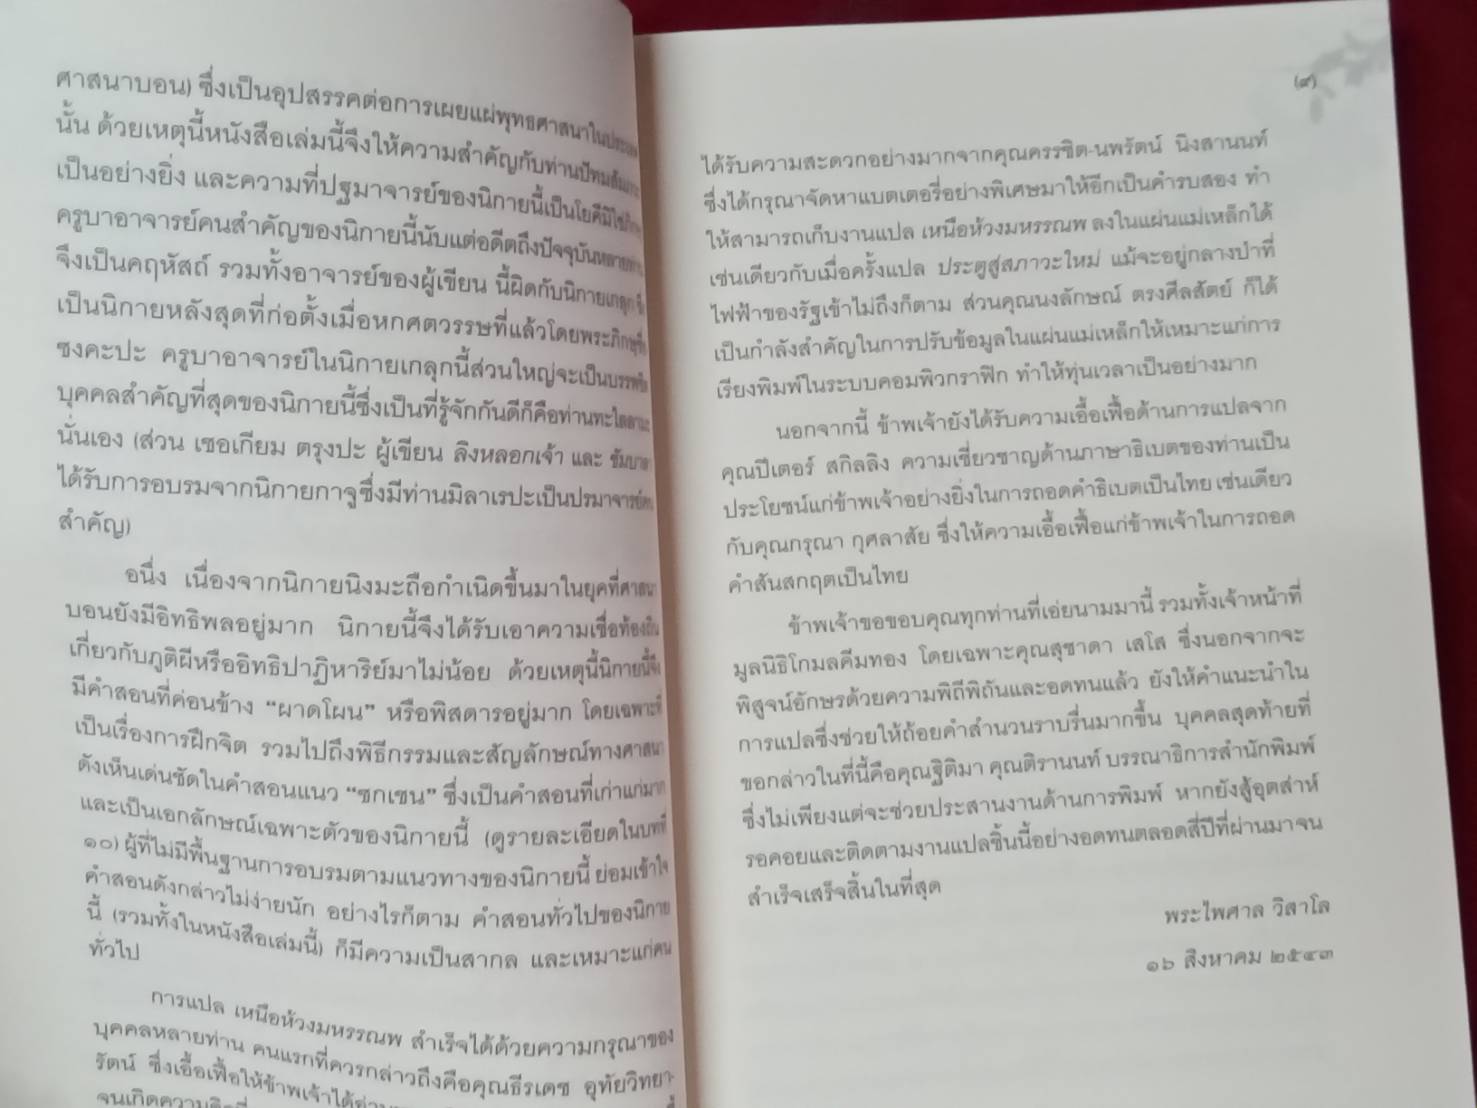 ศาสนาบอน) ซึ่งเป็นอุปสรรคต่อการเผยแผ่พุทธศาสนาในประเทศ
นั้น ด้วยเหตุนี้หนังสือเล่มนี้จึงให้ความสำคัญกับท่านปัทมสัมภวะ
เป็นอย่างยิ่ง และความที่ปฐมาจารย์ของนิกายนี้เป็นโยคีมิใช่ภิกษุ
ครูบาอาจารย์คนสำคัญของนิกายนี้นับแต่อดีตถึงปัจจุบันหลายท่าน
จึงเป็นคฤหัสถ์ รวมทั้งอาจารย์ของผู้เขียน นี้ผิดกับนิกายเกลุก ซึ่ง
เป็นนิกายหลังสุดที่ก่อตั้งเมื่อหกศตวรรษที่แล้วโดยพระภิกษุชื่อ
ซงคะปะ ครูบาอาจารย์ในนิกายเกลุกนี้ส่วนใหญ่จะเป็นบรรพชิต
บุคคลสำคัญที่สุดของนิกายนี้ซึ่งเป็นที่รู้จักกันดีก็คือท่านทะไลลามะ
นั่นเอง (ส่วน เชอเกียม ตรุงปะ ผู้เขียน ลิงหลอกเจ้า และ ชัมบาลา
ได้รับการอบรมจากนิกายกาจูซึ่งมีท่านมิลาเรปะเป็นปรมาจารย์คน
สำคัญ)
อนึ่ง เนื่องจากนิกายนิงมะถือกำเนิดขึ้นมาในยุคที่ศาสนา
บอนยังมีอิทธิพลอยู่มาก นิกายนี้จึงได้รับเอาความเชื่อท้องถิ่น
เกี่ยวกับภูติผีหรืออิทธิปาฏิหาริย์มาไม่น้อย ด้วยเหตุนี้นิกายนี้จึง
มีคำสอนที่ค่อนข้าง “ผาดโผน” หรือพิสดารอยู่มาก โดยเฉพาะที่
เป็นเรื่องการฝึกจิต รวมไปถึงพิธีกรรมและสัญลักษณ์ทางศาสนา
ดังเห็นเด่นชัดในคำสอนแนว “ซกเชน” ซึ่งเป็นคำสอนที่เก่าแก่มาก
และเป็นเอกลักษณ์เฉพาะตัวของนิกายนี้ (ดูรายละเอียดในบทที่
๑๐) ผู้ที่ไม่มีพื้นฐานการอบรมตามแนวทางของนิกายนี้ ย่อมเข้าใจ
คำสอนดังกล่าวไม่ง่ายนัก อย่างไรก็ตาม คำสอนทั่วไปของนิกาย
นี้ (รวมทั้งในหนังสือเล่มนี้) ก็มีความเป็นสากล และเหมาะแก่คน
ทั่วไป
การแปล เหนือห้วงมหรรณพ สำเร็จได้ด้วยความกรุณาของ
บุคคลหลายท่าน คนแรกที่ควรกล่าวถึงคือคุณธีรเดช อุทัยวิทยา-
รัตน์ ซึ่งเอื้อเฟื้อให้ข้าพเจ้าได้
จนเกิดความคิดที่
(๙)
ได้รับความสะดวกอย่างมากจากคุณครรชิต-นพรัตน์ นิงสานนท์
ซึ่งได้กรุณาจัดหาแบตเตอรี่อย่างพิเศษมาให้อีกเป็นคำรบสอง ทำ
ให้สามารถเก็บงานแปล เหนือห้วงมหรรณพ ลงในแผ่นแม่เหล็กได้
เช่นเดียวกับเมื่อครั้งแปล ประตูสู่สภาวะใหม่ แม้จะอยู่กลางป่าที่
ไฟฟ้าของรัฐเข้าไม่ถึงก็ตาม ส่วนคุณนงลักษณ์ ตรงศีลสัตย์ ก็ได้
เป็นกำลังสำคัญในการปรับข้อมูลในแผ่นแม่เหล็กให้เหมาะแก่การ
เรียงพิมพ์ในระบบคอมพิวกราฟิก ทำให้ทุ่นเวลาเป็นอย่างมาก
นอกจากนี้ ข้าพเจ้ายังได้รับความเอื้อเฟื้อด้านการแปลจาก
คุณปีเตอร์ สกิลลิง ความเชี่ยวชาญด้านภาษาธิเบตของท่านเป็น
ประโยชน์แก่ข้าพเจ้าอย่างยิ่งในการถอดคำธิเบตเป็นไทย เช่นเดียว
กับคุณกรุณา กุศลาสัย ซึ่งให้ความเอื้อเฟื้อแก่ข้าพเจ้าในการถอด
คำสันสกฤตเป็นไทย
ข้าพเจ้าขอขอบคุณทุกท่านที่เอ่ยนามมานี้ รวมทั้งเจ้าหน้าที่
มูลนิธิโกมลคีมทอง โดยเฉพาะคุณสุชาดา เสโส ซึ่งนอกจากจะ
พิสูจน์อักษรด้วยความพิถีพิถันและอดทนแล้ว ยังให้คำแนะนำใน
การแปลซึ่งช่วยให้ถ้อยคำสำนวนราบรื่นมากขึ้น บุคคลสุดท้ายที่
ขอกล่าวในที่นี้คือคุณฐิติมา คุณติรานนท์ บรรณาธิการสำนักพิมพ์
ซึ่งไม่เพียงแต่จะช่วยประสานงานด้านการพิมพ์ หากยังสู้อุตส่าห์
รอคอยและติดตามงานแปลชิ้นนี้อย่างอดทนตลอดสี่ปีที่ผ่านมาจน
สำเร็จเสร็จสิ้นในที่สุด
พระไพศาล วิสาโล
๑๖ สิงหาคม ๒๕๔๓